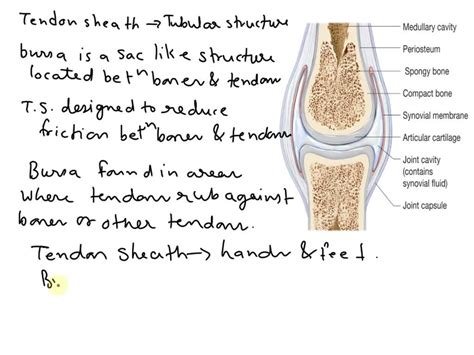 Tendon sheath → Tubular structure
bursa is a sac like structure
located betⁿ bones & tendon
T.S. designed to reduce
friction betⁿ bones & tendons
Bursa found in areas
where tendons rub against
bones or other tendons.
Tendon Sheath → hands & feet.
Bu
Medullary cavity
Periosteum
Spongy bone
Compact bone
Synovial membrane
Articular cartilage
Joint cavity
(contains
synovial fluid)
Joint capsule